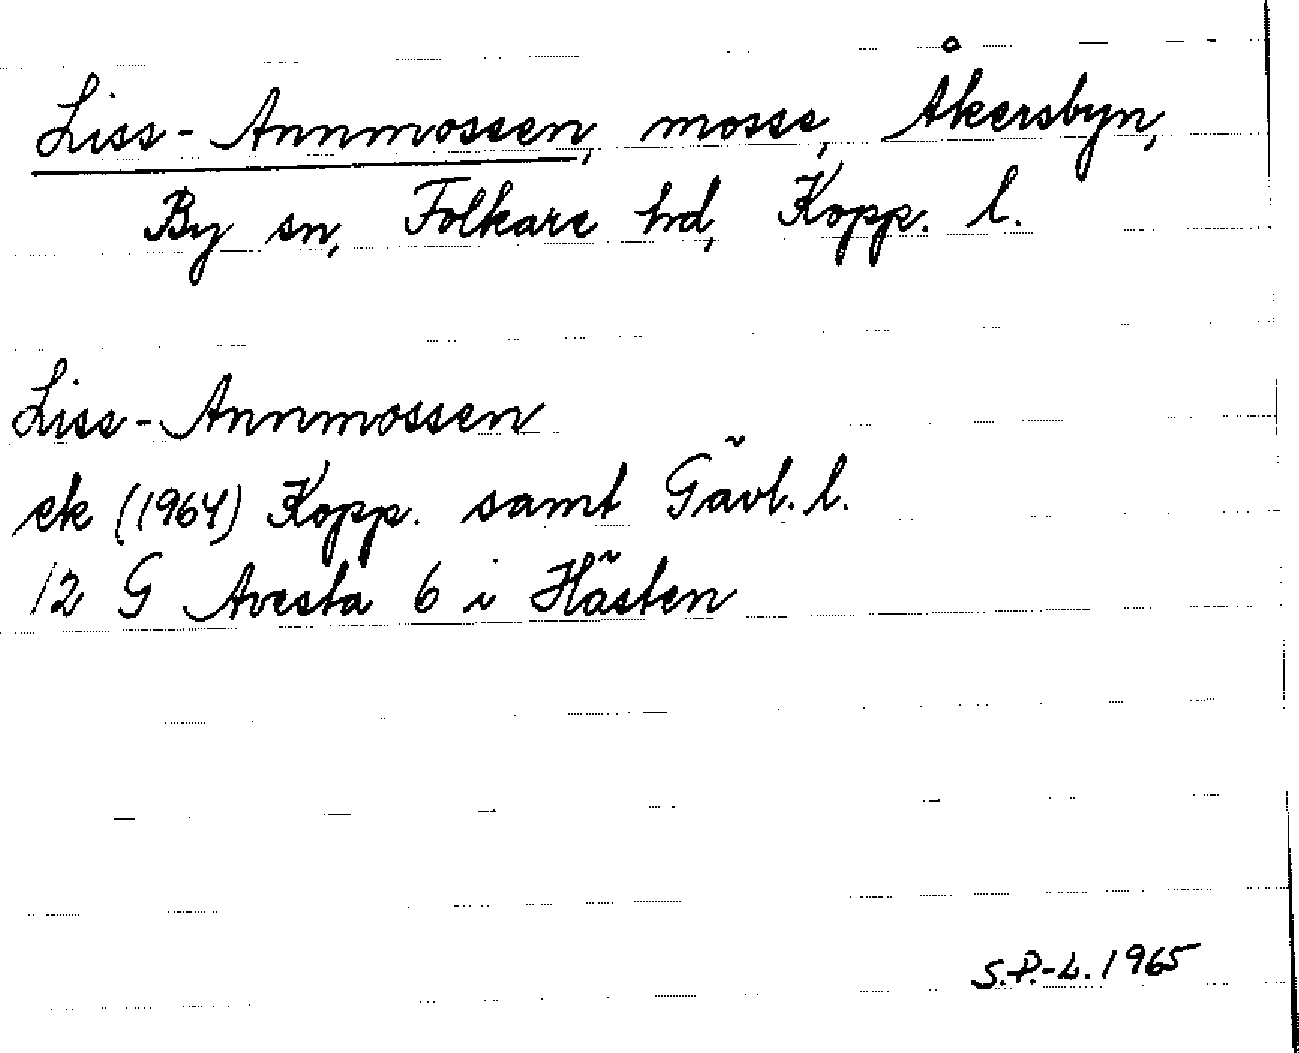 Liss-Annmossen, mosse, Åkersbyn,
By sn, Folkare hd, Kopp. l.
Liss-Annmossen
ek (1964) Kopp. samt Gävl. l.
12 G Avesta 6 i Hästen
S.P.-L. 1965